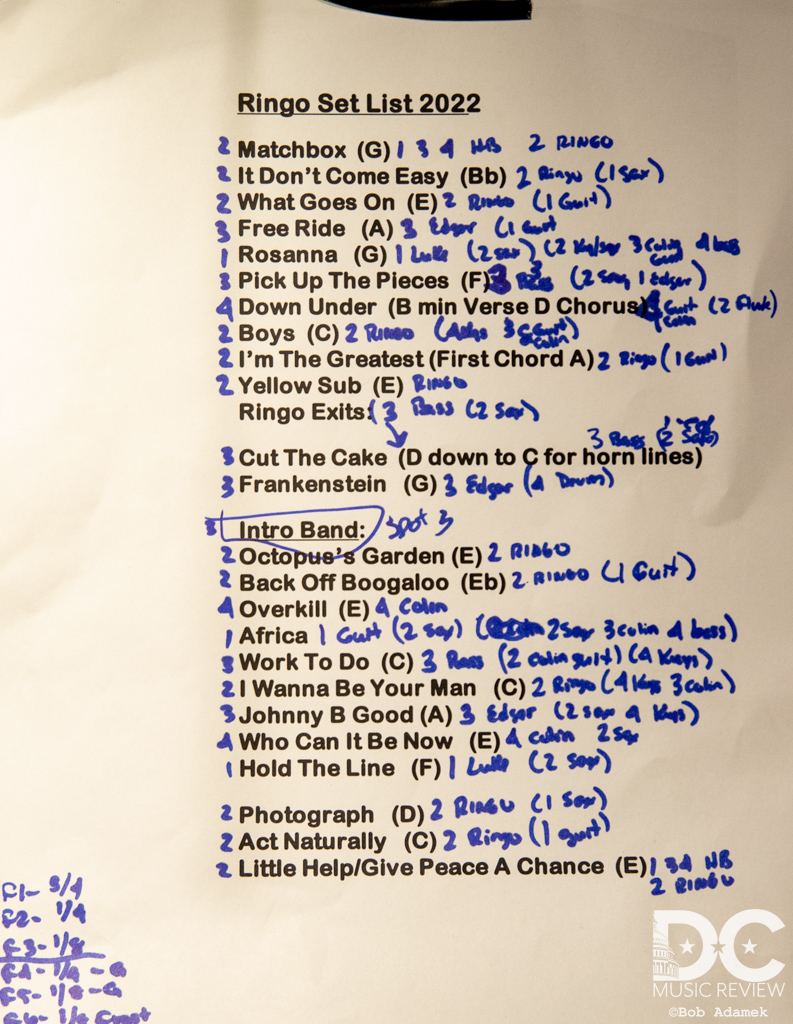 Ringo Set List 2022
2 Matchbox (G) 1 3 4 HB 2 RINGO
2 It Don't Come Easy (Bb) 2 Ringo (1 Sax)
2 What Goes On (E) 2 RINGO (1 Guit)
3 Free Ride (A) 3 Edgar (1 Guit
1 Rosanna (G) 1 Luke (2 sax) (2 Key/sax 3 Colin Guit 4 bass
3 Pick Up The Pieces (F) 3 Bass (2 Sax, 1 Edgar)
4 Down Under (B min Verse D Chorus) Guit (2 Flute)
4 Colin
2 Boys (C) 2 RINGO (4 Keys 3 Guit Colin)
2 I'm The Greatest (First Chord A) 2 Ringo (1 Guit)
2 Yellow Sub (E) RINGO
Ringo Exits: (3 Bass (2 Sax)
3 Bass (2 Sax)
3 Cut The Cake (D down to C for horn lines)
3 Frankenstein (G) 3 Edgar (4 Drum)
3 Intro Band: Spot 3
2 Octopus's Garden (E) 2 RINGO
2 Back Off Boogaloo (Eb) 2 RINGO (1 Guit)
4 Overkill (E) 4 Colin
1 Africa 1 Guit (2 Sax) (2 Sax 3 Colin 4 bass)
3 Work To Do (C) 3 Bass (2 Colin guit) (4 Keys)
2 I Wanna Be Your Man (C) 2 Ringo (4 Keys 3 Colin)
3 Johnny B Good (A) 3 Edgar (2 sax 4 Keys)
4 Who Can It Be Now (E) 4 Colin 2 Sax
1 Hold The Line (F) 1 Luke (2 Sax)
2 Photograph (D) 2 RINGO (1 Sax)
2 Act Naturally (C) 2 Ringo (1 guit)
2 Little Help/Give Peace A Chance (E) 1 3 4 HB
2 RINGO
F1- 3/4
F2- 1/4
F3- 1/8
F4- 1/4 - G
F5- 1/8 - G
DC
MUSIC REVIEW
©Bob Adamek